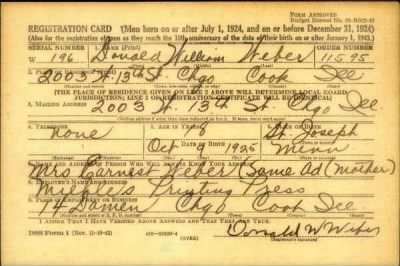 FORM APPROVED
REGISTRATION CARD—(Men born on or after July 1, 1924, and on or before December 31, 1924)
(Also for the registration of men as they reach the 18th anniversary of the date of their birth on or after January 1, 1943.)
SERIAL NUMBER 1. NAME (Print) ORDER NUMBER
W 196 Donald William Weber 11595
2. PLACE OF RESIDENCE (Print)
2003 W 13th St. Chgo Cook Ill
[THE PLACE OF RESIDENCE GIVEN ON LINE 2 ABOVE WILL DETERMINE LOCAL BOARD
JURISDICTION; LINE 2 OF REGISTRATION CERTIFICATE WILL BE IDENTICAL]
3. MAILING ADDRESS
2003 W. 13th St. Chgo Ill
4. TELEPHONE 5. AGE IN YEARS 6. PLACE OF BIRTH
None 18 St. Joseph
DATE OF BIRTH
Oct 9 1925 Minn
7. NAME AND ADDRESS OF PERSON WHO WILL ALWAYS KNOW YOUR ADDRESS
Mrs Earnest Weber Same ad (Mother)
8. EMPLOYER'S NAME AND ADDRESS
Printing Press
9. PLACE OF EMPLOYMENT OR BUSINESS
14 Damen Chgo Cook Ill
I AFFIRM THAT I HAVE VERIFIED ABOVE ANSWERS AND THAT THEY ARE TRUE.
DSS FORM 1
Donald W Weber